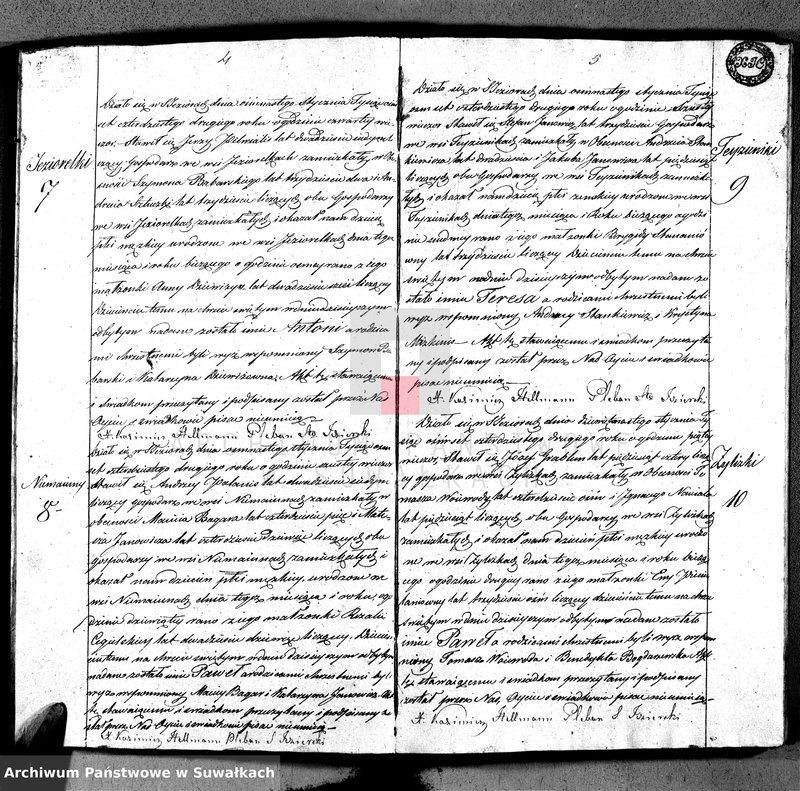 4
Jeziorelki
7
Działo się w Jeziorach dnia ośmnastego Stycznia Tysiąc osm
set czterdziestego drugiego roku o godzinie czwartey wie
czor. Stawił się Jerzy lat dwadzieścia
Gospodarz we wsi Jeziorelkach zamieszkały, w Obe
cności Szymona Babanskiego lat trzydzieści dwa i An
drzeia lat trzydzieści liczących obu Gospodarzy
we wsi Jeziorelkach zamieszkałych i okazał nam dziecię
płci męzkiey urodzone we wsi Jeziorelkach dnia tego
miesiąca i roku bieżącego o godzinie osmey rano z iego
małżonki Anny lat dwadzieścia liczącey
Dziecięciu temu na chrzcie świętym w dniu dzisieyszym
odbytym nadane zostało imie Antoni a rodzica
mi chrzestnemi byli wyż wspomniony Szymon Ba
banski i Katarzyna Akt ten stawaiącemu
i swiadkom przeczytany i podpisany został przez Nas
Oyciec i swiadkowie pisać nieumieią
X. Kazimierz Hellmann Pleban
Numainny
8
Działo się w Jeziorach dnia osmnastego Stycznia Tysiąc osm
set czterdziestego drugiego roku o godzinie szostey wieczor
Stawił się Andrzey lat dwadzieścia siedm
liczący gospodarz we wsi Numainnach zamieszkały w
obecności Macieia Bagara lat czterdzieści pięc i Mate
usza Janowicza lat czterdzieści Dziewięc liczących obu
gospodarzy we wsi Numainnach zamieszkałych i
okazał nam dziecie płci męzkiey urodzone we
wsi Numainnach dnia tego miesiąca i roku, o go
dzinie dziewiątey rano z iego małżonki Rozalii
lat dwadzieścia liczącey. Dziecię
ciu temu na chrzcie świętym w dniu dzisieyszym odbytym
nadane zostało imie Paweł a rodzicami chrzestnemi byli
wyż wspomniony Maciey Bagar i Katarzyna Janowicz Akt
ten stawaiącemu i swiadkom przeczytany i podpisany zo
stał przez Nas Oyciec i swiadkowie pisać nieumieią
X. Kazimierz Hellmann Pleban
5
9
Działo się w Jeziorach dnia osmnastego stycznia Tysiąc
osm set czterdziestego drugiego roku o godzinie szostey
wieczor Stawił się Stefan Janowicz lat trzydzieści Gospodarz
we wsi zamieszkały w Obecności Andrzeia Stan
kiewicza lat dwadzieścia i Jakuba Janowicza lat pięcdziesiąt
liczących obu Gospodarzy we wsi zamieszka
łych i okazał nam dziecie płci zenskiey urodzone we wsi
dnia tego miesiąca i Roku bieżącego o godzi
nie siodmey rano z iego małżonki Brygidy
lat trzydzieści liczącey Dziecięciu temu na chrzcie
świętym w dniu dzisieyszym odbytym nadane zo
stało imie Teresa a rodzicami chrzestnemi byli
wyż wspomniony Andrzey Stankiewicz i Krystyna
Akt ten stawaiącemu i swiadkom przeczyta
ny i podpisany został przez Nas Oyciec i swiadkowie
pisac nieumieią
X. Kazimierz Hellmann Pleban
Zyliszki
10
Działo się w Jeziorach dnia dziewiętnastego stycznia Ty
siąc ośmset czterdziestego drugiego roku o godzinie piątey
wieczor Stawił się Jozef lat pięcdziesiąt cztery liczą
cy gospodarz we wsi Zyliszkach zamieszkały w Obecności To
masza Woiewody lat czterdzieści ośm i Ignacego
lat pięcdziesiąt liczących obu Gospodarzy we wsi Zyliszkach
zamieszkałych i okazał nam dziecie płci męzkiey urodzo
ne we wsi Zyliszkach dnia tego miesiąca i roku bieżą
cego o godzinie drugiey rano z iego małżonki Ewy
lat trzydzieści ośm liczącey dziecięciu temu na chrzcie
świętym w dniu dzisieyszym odbytym nadane zostało
imie Paweł a rodzicami chrzestnemi byli wyż wspom
niony Tomasz Woiewoda i Benedykta Bogdanowska Akt
ten stawaiącemu i swiadkom przeczytany i podpisany
został przez Nas, Oyciec i swiadkowie pisac nieumieią
X. Kazimierz Hellmann Pleban
Archiwum Państwowe w Suwałkach